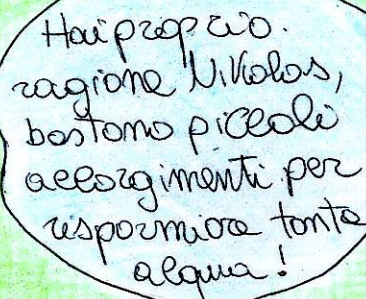 Hai proprio.
ragione Nikolas,
bastano piccoli
accorgimenti per
risparmiare tanta
acqua!